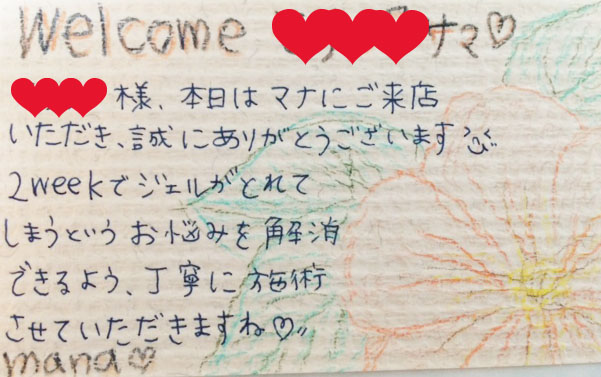 Welcome ナマ♡
様、本日はマナにご来店
いただき、誠にありがとうございます
2weekでジェルがとれて
しまうという お悩みを 解消
できるよう、丁寧に 施術
させていただきますね♡〃
mana♡